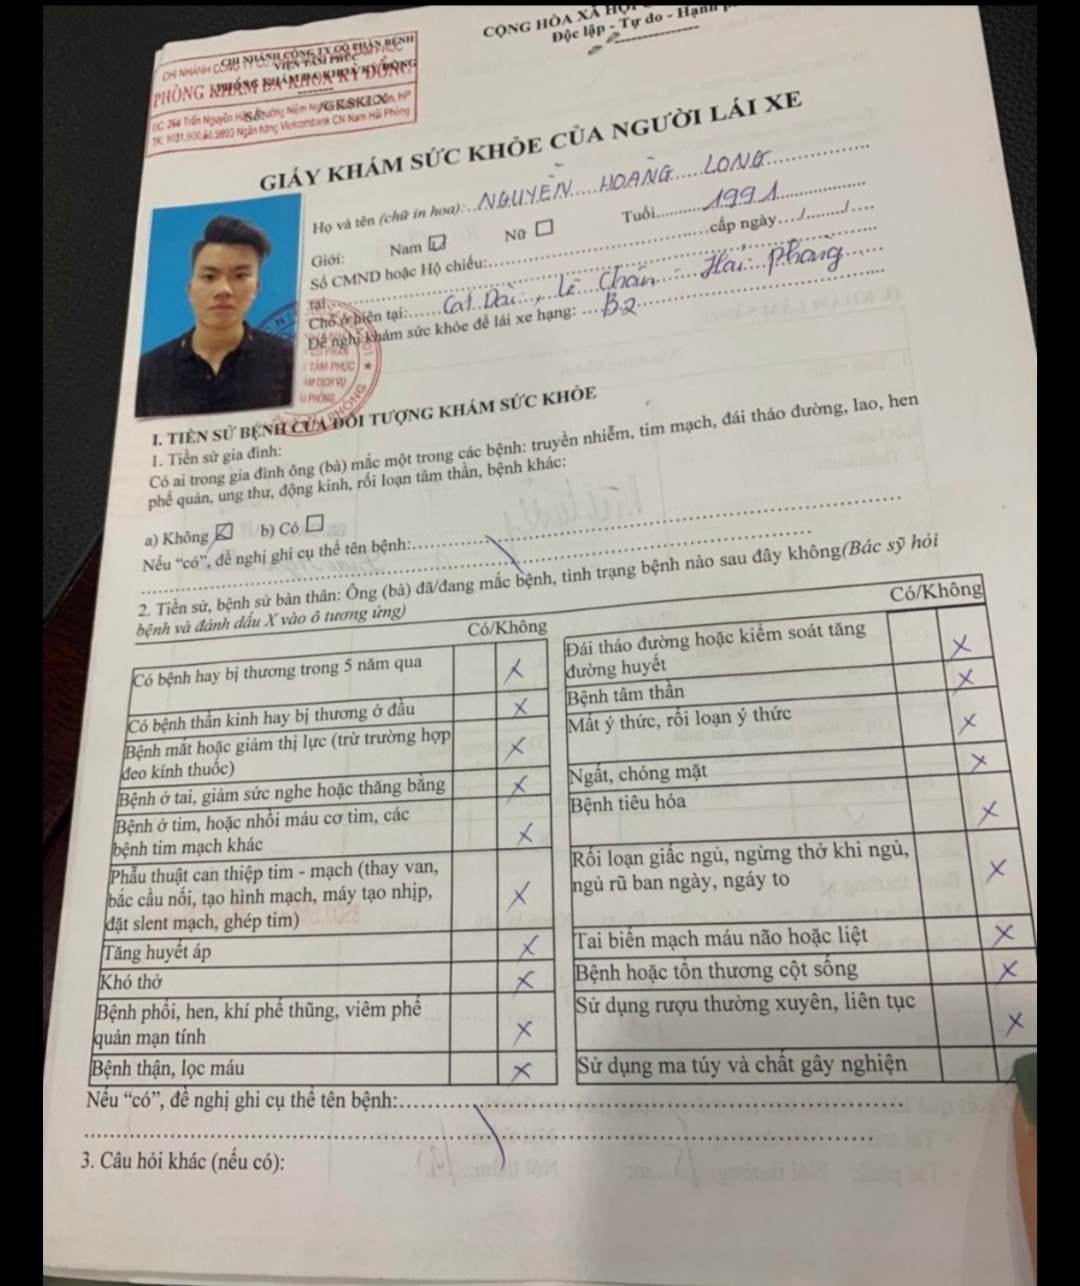 CỘNG HÒA XÃ HỘI
Độc lập - Tự do - Hạnh
CHI NHÁNH CÔNG TY CỔ PHẦN BỆNH
VIỆN TÂM PHÚC
PHÒNG KHÁM ĐA KHOA KỲ ĐỒNG
Số: /GKSKLX
GIẤY KHÁM SỨC KHỎE CỦA NGƯỜI LÁI XE
Họ và tên (chữ in hoa): NGUYỄN HOÀNG LONG
Giới: Nam ☑ Nữ ☐ Tuổi 1991
Số CMND hoặc Hộ chiếu: cấp ngày / /
tại
Chỗ ở hiện tại: Cát Dài, Lê Chân - Hải Phòng
Đề nghị khám sức khỏe để lái xe hạng: B2
TÂM PHÚC
I. TIỀN SỬ BỆNH CỦA ĐỐI TƯỢNG KHÁM SỨC KHỎE
1. Tiền sử gia đình:
Có ai trong gia đình ông (bà) mắc một trong các bệnh: truyền nhiễm, tim mạch, đái tháo đường, lao, hen
phế quản, ung thư, động kinh, rối loạn tâm thần, bệnh khác:
a) Không ☑ b) Có ☐
Nếu “có”, đề nghị ghi cụ thể tên bệnh:
2. Tiền sử, bệnh sử bản thân: Ông (bà) đã/đang mắc bệnh, tình trạng bệnh nào sau đây không(Bác sỹ hỏi
bệnh và đánh dấu X vào ô tương ứng)
Có/Không
Có bệnh hay bị thương trong 5 năm qua X
Có bệnh thần kinh hay bị thương ở đầu X
Bệnh mắt hoặc giảm thị lực (trừ trường hợp
đeo kính thuốc) X
Bệnh ở tai, giảm sức nghe hoặc thăng bằng X
Bệnh ở tim, hoặc nhồi máu cơ tim, các
bệnh tim mạch khác X
Phẫu thuật can thiệp tim - mạch (thay van,
bắc cầu nối, tạo hình mạch, máy tạo nhịp,
đặt slent mạch, ghép tim) X
Tăng huyết áp X
Khó thở X
Bệnh phổi, hen, khí phế thũng, viêm phế
quản mạn tính X
Bệnh thận, lọc máu X
Có/Không
Đái tháo đường hoặc kiểm soát tăng
đường huyết X
Bệnh tâm thần X
Mất ý thức, rối loạn ý thức X
Ngất, chóng mặt X
Bệnh tiêu hóa X
Rối loạn giấc ngủ, ngừng thở khi ngủ,
ngủ rũ ban ngày, ngáy to X
Tai biến mạch máu não hoặc liệt X
Bệnh hoặc tổn thương cột sống X
Sử dụng rượu thường xuyên, liên tục X
Sử dụng ma túy và chất gây nghiện
Nếu “có”, đề nghị ghi cụ thể tên bệnh:
3. Câu hỏi khác (nếu có):